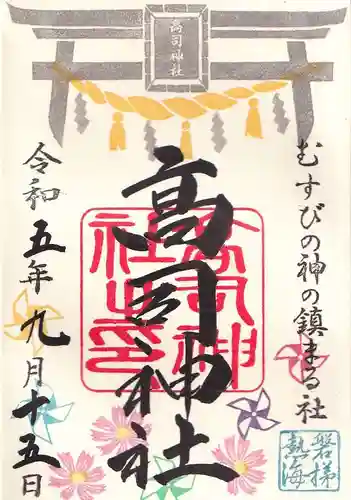 高司神社
むすびの神の鎮まる社
高司神社
高司神社之印
令和五年九月十五日
磐梯熱海